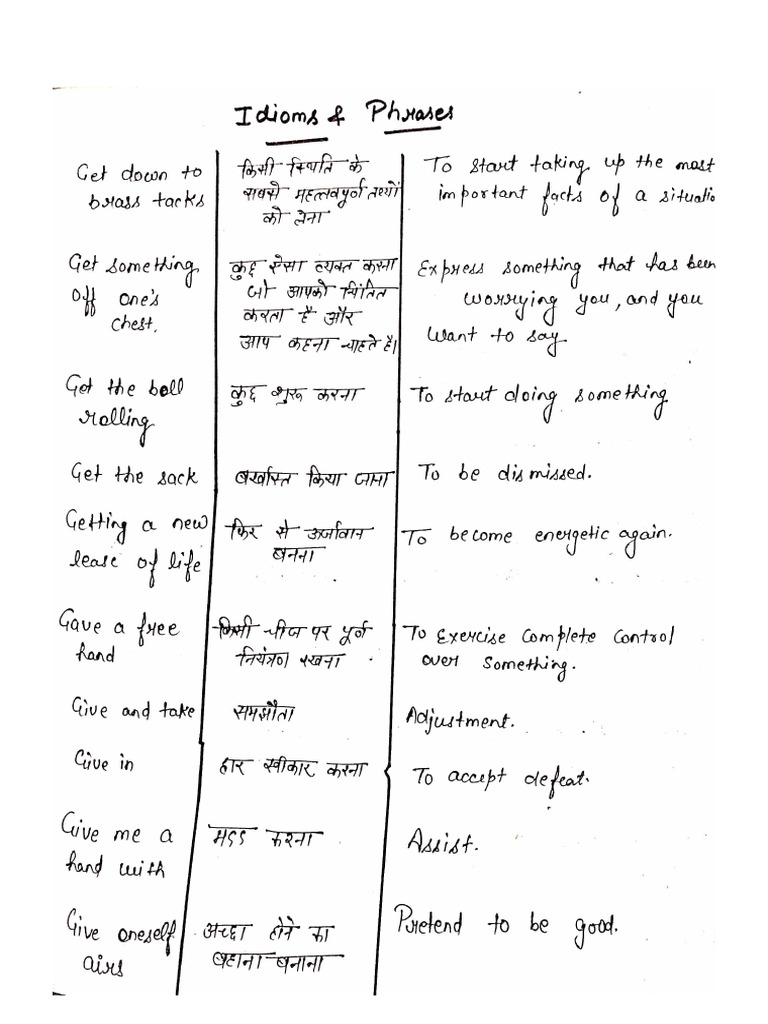 Idioms & Phrases
Get down to
brass tacks
किसी स्थिति के
सबसे महत्त्वपूर्ण तथ्यों
को लेना
To start taking up the most
important facts of a situatio
Get something
Off one's
chest.
कुछ ऐसा व्यक्त करना
जो आपको चिंतित
करता है और
आप कहना चाहते है।
Express something that has been
worrying you, and you
want to say
Get the ball
rolling
कुछ शुरू करना
To start doing something
Get the sack
बर्खास्त किया जाना
To be dismissed.
Getting a new
lease of life
फिर से ऊर्जावान
बनना
To become energetic again.
Gave a free
hand
किसी चीज पर पूर्ण
नियंत्रण रखना
To Exercise complete control
over something.
Give and take
समझौता
Adjustment.
Give in
हार स्वीकार करना
To accept defeat.
Give me a
hand with
करना
Assist.
Give oneself
airs
अच्छा होने का
बहाना बनाना
Pretend to be good.